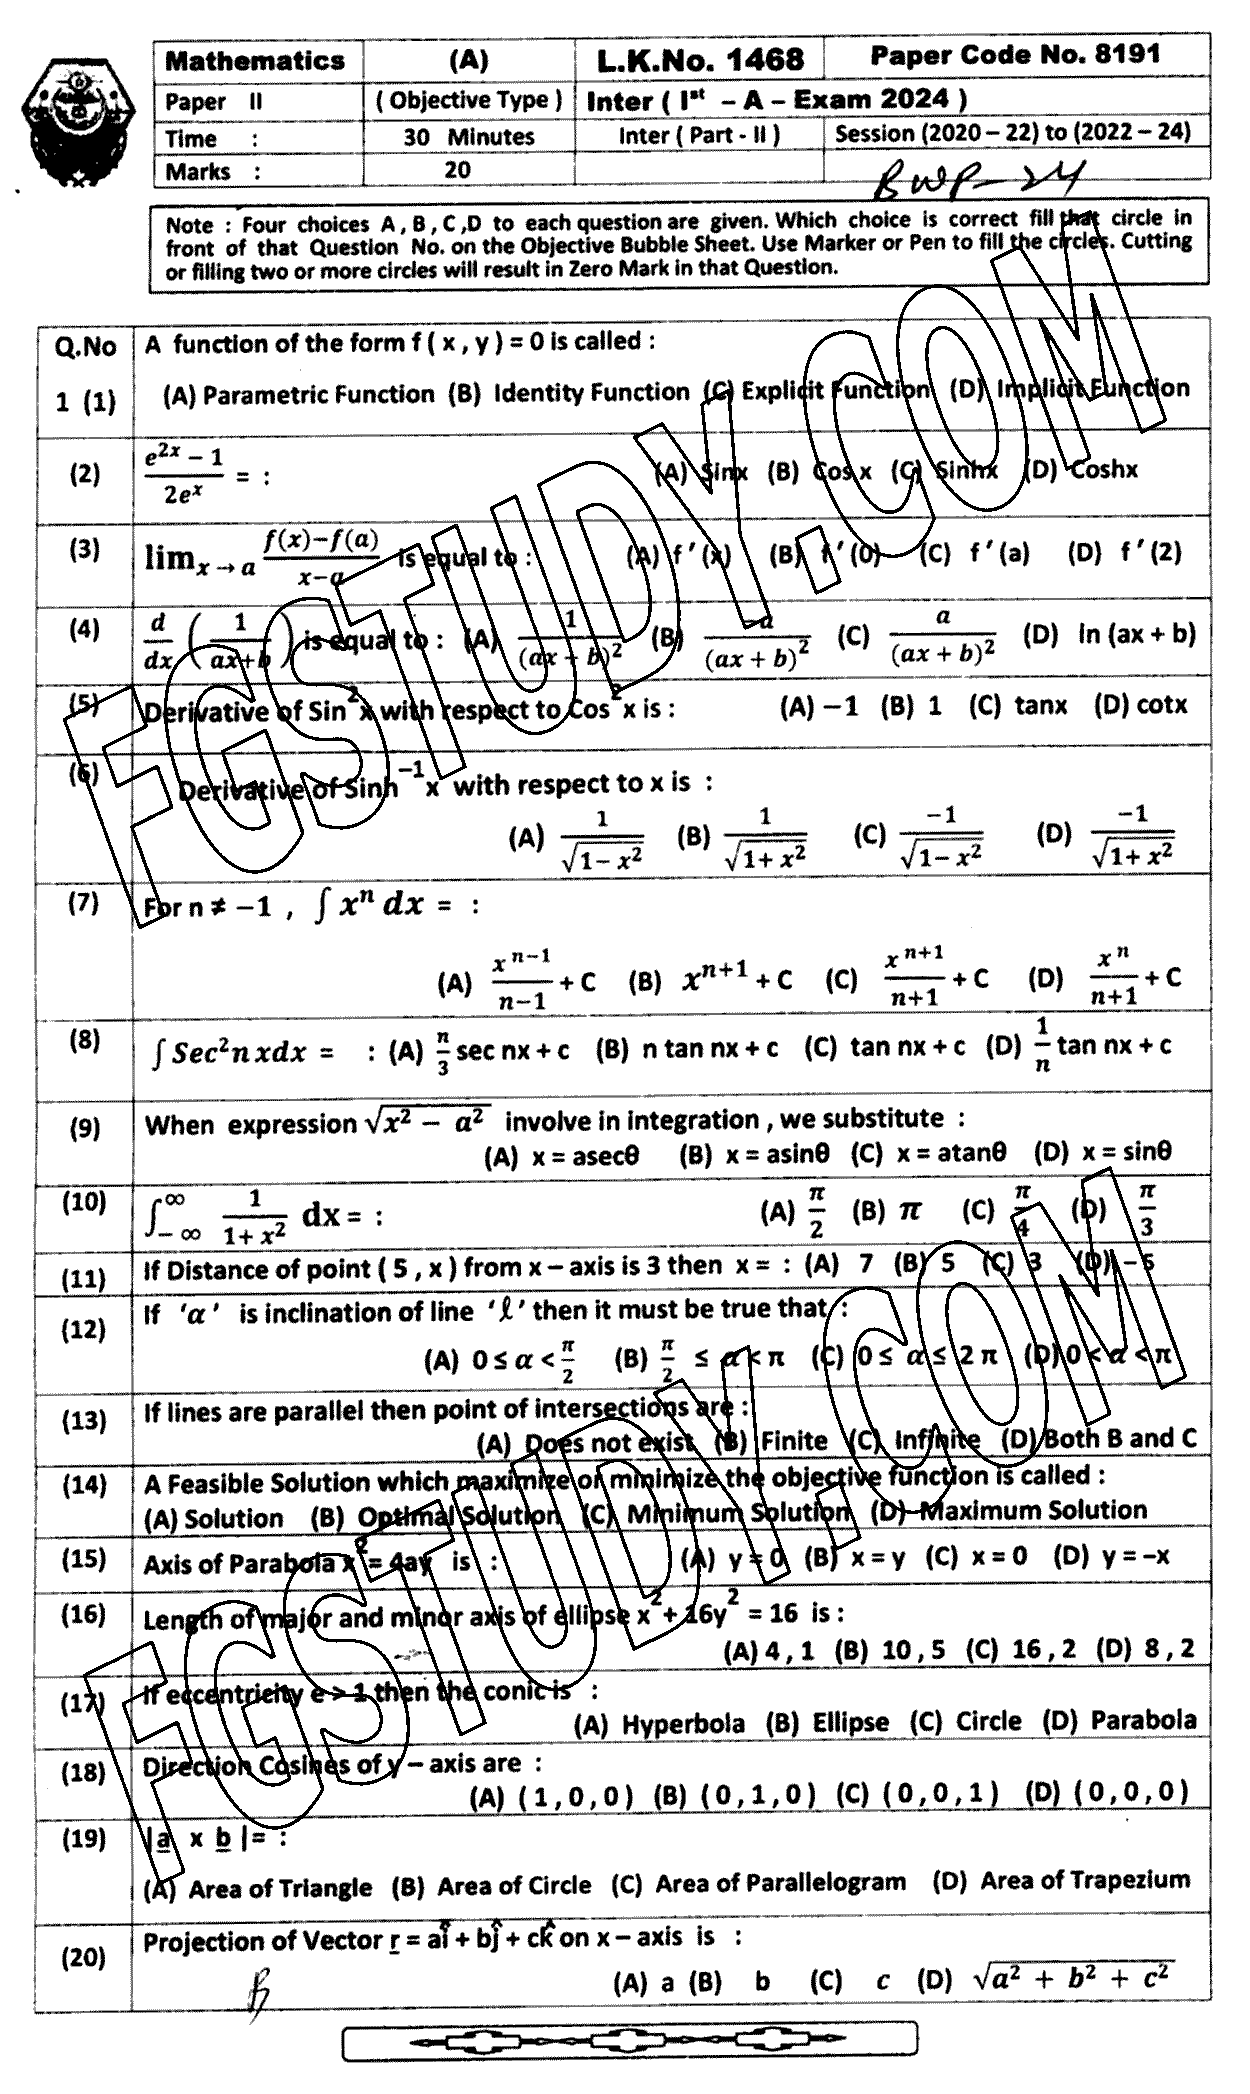 Mathematics (A) L.K.No. 1468 Paper Code No. 8191
Paper II ( Objective Type ) Inter ( Iˢᵗ – A – Exam 2024 )
Time : 30 Minutes Inter ( Part - II ) Session (2020 – 22) to (2022 – 24)
Marks : 20
BWP-24
Note : Four choices A , B , C ,D to each question are given. Which choice is correct fill that circle in
front of that Question No. on the Objective Bubble Sheet. Use Marker or Pen to fill the circles. Cutting
or filling two or more circles will result in Zero Mark in that Question.
Q.No A function of the form f ( x , y ) = 0 is called :
1 (1) (A) Parametric Function (B) Identity Function (C) Explicit Function (D) Implicit Function
(2) (e²ˣ – 1)/(2eˣ) = : (A) Sinx (B) Cos x (C) Sinhx (D) Coshx
(3) limₓ→ₐ (f(x)–f(a))/(x–a) is equal to : (A) f ′(x) (B) f ′(0) (C) f ′(a) (D) f ′(2)
(4) d/dx (1/(ax+b)) is equal to : (A) 1/(ax + b)² (B) –a/(ax + b)² (C) a/(ax + b)² (D) ln (ax + b)
(5) Derivative of Sin²x with respect to Cos²x is : (A) –1 (B) 1 (C) tanx (D) cotx
(6) Derivative of Sinh⁻¹x with respect to x is :
(A) 1/√(1– x²) (B) 1/√(1+ x²) (C) –1/√(1– x²) (D) –1/√(1+ x²)
(7) For n ≠ –1 , ∫ xⁿ dx = :
(A) xⁿ⁻¹/(n–1) + C (B) xⁿ⁺¹ + C (C) xⁿ⁺¹/(n+1) + C (D) xⁿ/(n+1) + C
(8) ∫ Sec²n xdx = : (A) n/3 sec nx + c (B) n tan nx + c (C) tan nx + c (D) 1/n tan nx + c
(9) When expression √(x² – a²) involve in integration , we substitute :
(A) x = asecθ (B) x = asinθ (C) x = atanθ (D) x = sinθ
(10) ∫₋∞^∞ 1/(1+ x²) dx = : (A) π/2 (B) π (C) π/4 (D) π/3
(11) If Distance of point ( 5 , x ) from x – axis is 3 then x = : (A) 7 (B) 5 (C) 3 (D) –5
(12) If 'α' is inclination of line 'ℓ' then it must be true that :
(A) 0 ≤ α < π/2 (B) π/2 ≤ α < π (C) 0 ≤ α ≤ 2 π (D) 0 < α < π
(13) If lines are parallel then point of intersections are :
(A) Does not exist (B) Finite (C) Infinite (D) Both B and C
(14) A Feasible Solution which maximize or minimize the objective function is called :
(A) Solution (B) Optimal Solution (C) Minimum Solution (D) Maximum Solution
(15) Axis of Parabola x² = 4ay is : (A) y = 0 (B) x = y (C) x = 0 (D) y = –x
(16) Length of major and minor axis of ellipse x² + 16y² = 16 is :
(A) 4 , 1 (B) 10 , 5 (C) 16 , 2 (D) 8 , 2
(17) If eccentricity e > 1 then the conic is :
(A) Hyperbola (B) Ellipse (C) Circle (D) Parabola
(18) Direction Cosines of y – axis are :
(A) ( 1 , 0 , 0 ) (B) ( 0 , 1 , 0 ) (C) ( 0 , 0 , 1 ) (D) ( 0 , 0 , 0 )
(19) |a x b |= :
(A) Area of Triangle (B) Area of Circle (C) Area of Parallelogram (D) Area of Trapezium
(20) Projection of Vector r = aî + bĵ + ck̂ on x – axis is :
(A) a (B) b (C) c (D) √(a² + b² + c²)
B
FGSTUDY.COM
FGSTUDY.COM